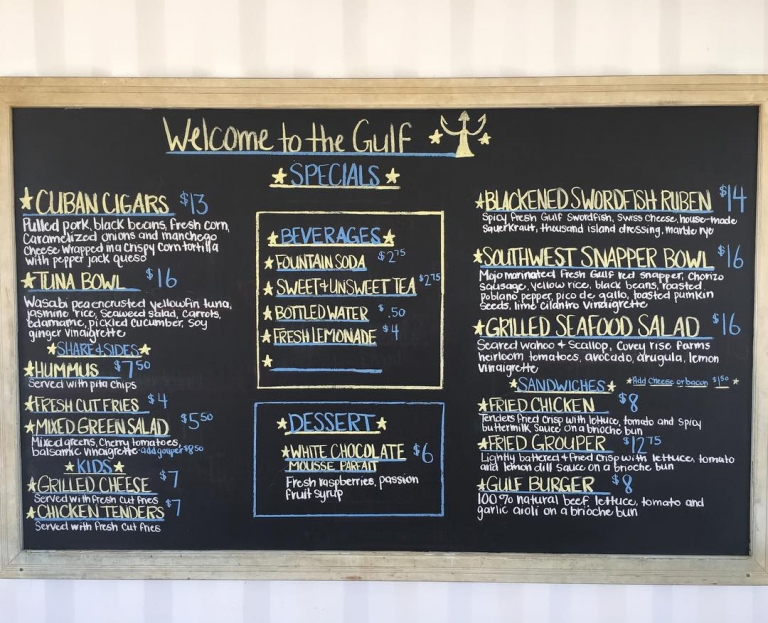 Welcome to the Gulf
SPECIALS
CUBAN CIGARS $13
Pulled pork, black beans, fresh corn,
Caramelized onions and manchego
Cheese wrapped in a Crispy Corn tortilla
with pepper jack queso
TUNA BOWL $16
Wasabi pea encrusted yellowfin tuna,
jasmine rice, Seaweed salad, carrots,
edamame, pickled cucumber, Soy
ginger vinaigrette
SHARE & SIDES
HUMMUS $7.50
Served with pita chips
FRESH CUT FRIES $4
MIXED GREEN SALAD $5.50
Mixed greens, Cherry tomatoes,
balsamic vinaigrette -add gouper $8.50
KIDS
GRILLED CHEESE $7
Served with fresh cut fries
CHICKEN TENDERS $7
Served with fresh Cut fries
BEVERAGES
FOUNTAIN SODA $2.75
SWEET + UNSWEET TEA $2.75
BOTTLED WATER $.50
FRESH LEMONADE $4
DESSERT
WHITE CHOCOLATE $6
MOUSSE PARFAIT
Fresh raspberries, passion
fruit syrup
BLACKENED SWORDFISH RUBEN $14
Spicy fresh Gulf Swordfish, Swiss cheese, house-made
Sauerkraut, thousand island dressing, marble rye
SOUTHWEST SNAPPER BOWL $16
Mojo marinated Fresh Gulf red snapper, Chorizo
Sausage, yellow rice, black beans, roasted
poblano pepper, pico de gallo, toasted pumkin
Seeds, lime cilantro Vinaigrette
GRILLED SEAFOOD SALAD $16
Seared wahoo + Scallop, Covey rise Farms
heirloom tomatoes, avocado, arugula, lemon
Vinaigrette
SANDWICHES *Add Cheese or bacon $1.50*
FRIED CHICKEN $8
Tenders fried Crisp with lettuce, tomato and Spicy
buttermilk Sauce on a brioche bun
FRIED GROUPER $12.75
Lightly battered + fried Crisp with lettuce, tomato
and lemon dill sauce on a brioche bun
GULF BURGER $8
100% natural beef lettuce, tomato and
garlic aioli on a brioche bun